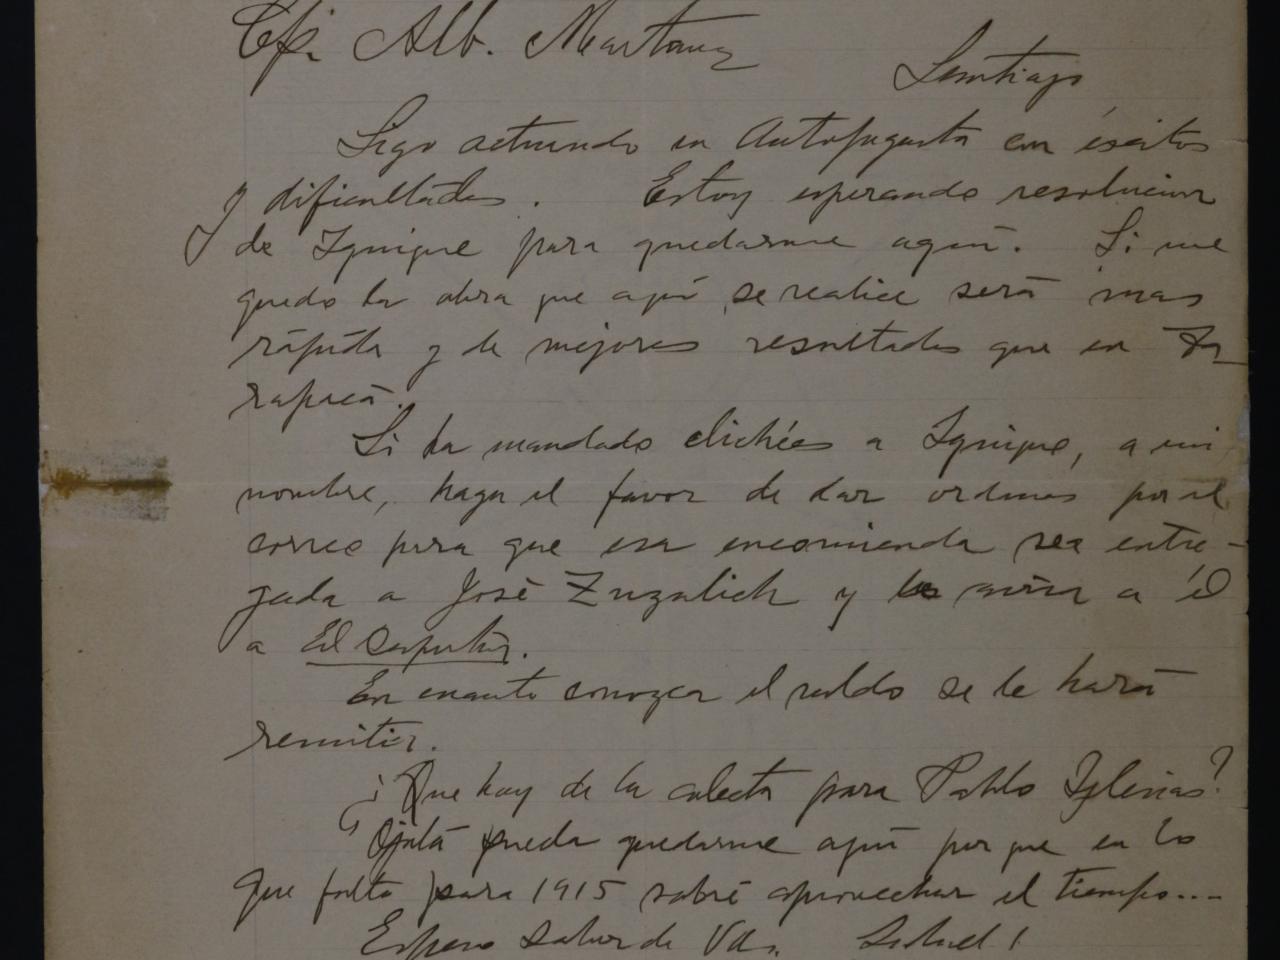 Cp. Alb. Martinez
Santiago
Sigo actuando en Antofagasta con éxitos
y dificultades. Estoy esperando resolucion
de Iquique para quedarme aquí. Si me
quedo la obra que aquí se realice será mas
rápida y de mejores resultados que en Ta
rapacá.
Si ha mandado clichées a Iquique, a mi
nombre, haga el favor de dar ordenes por el
correo para que esa encomienda sea entre-
gada a José Zuzulich y la avisa a él
a El
En cuanto conozca el saldo se le hará
remitir.
¿Que hay de la colecta para Pablo Iglesias?
Ojalá pueda quedarme aquí por que en lo
que falta para 1915 sabré aprovechar el tiempo....
Espero saber de Uds. Salud!